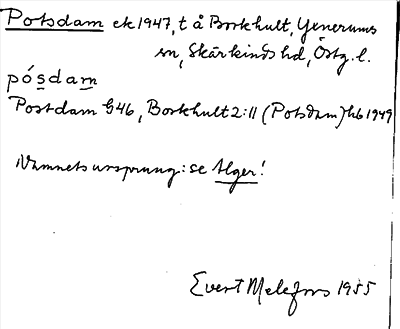 Potsdam ek 1947, t å Borkhult, Yxnerums
sn, Skärkinds hd, Östg. l.
pósdam
Postdam G46, Borkhult 2:11 (Potsdam) hb 1949
Namnets ursprung: se Alger!
Evert Melefors 1955